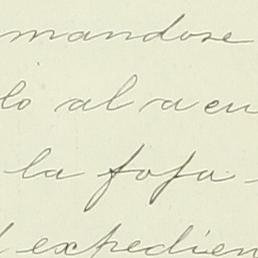 mandose
lo al acu
la fofa
expedien